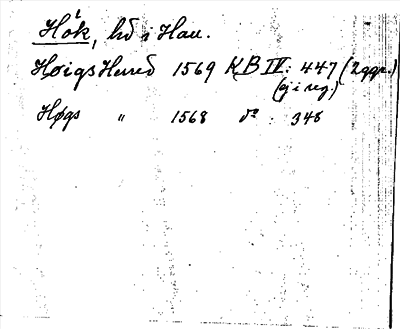 Hök, hd i Hall.
HøigsHered 1569 KB IV: 447 (2 ggr.)
(ej i reg.)
Høgs " 1568 do : 348